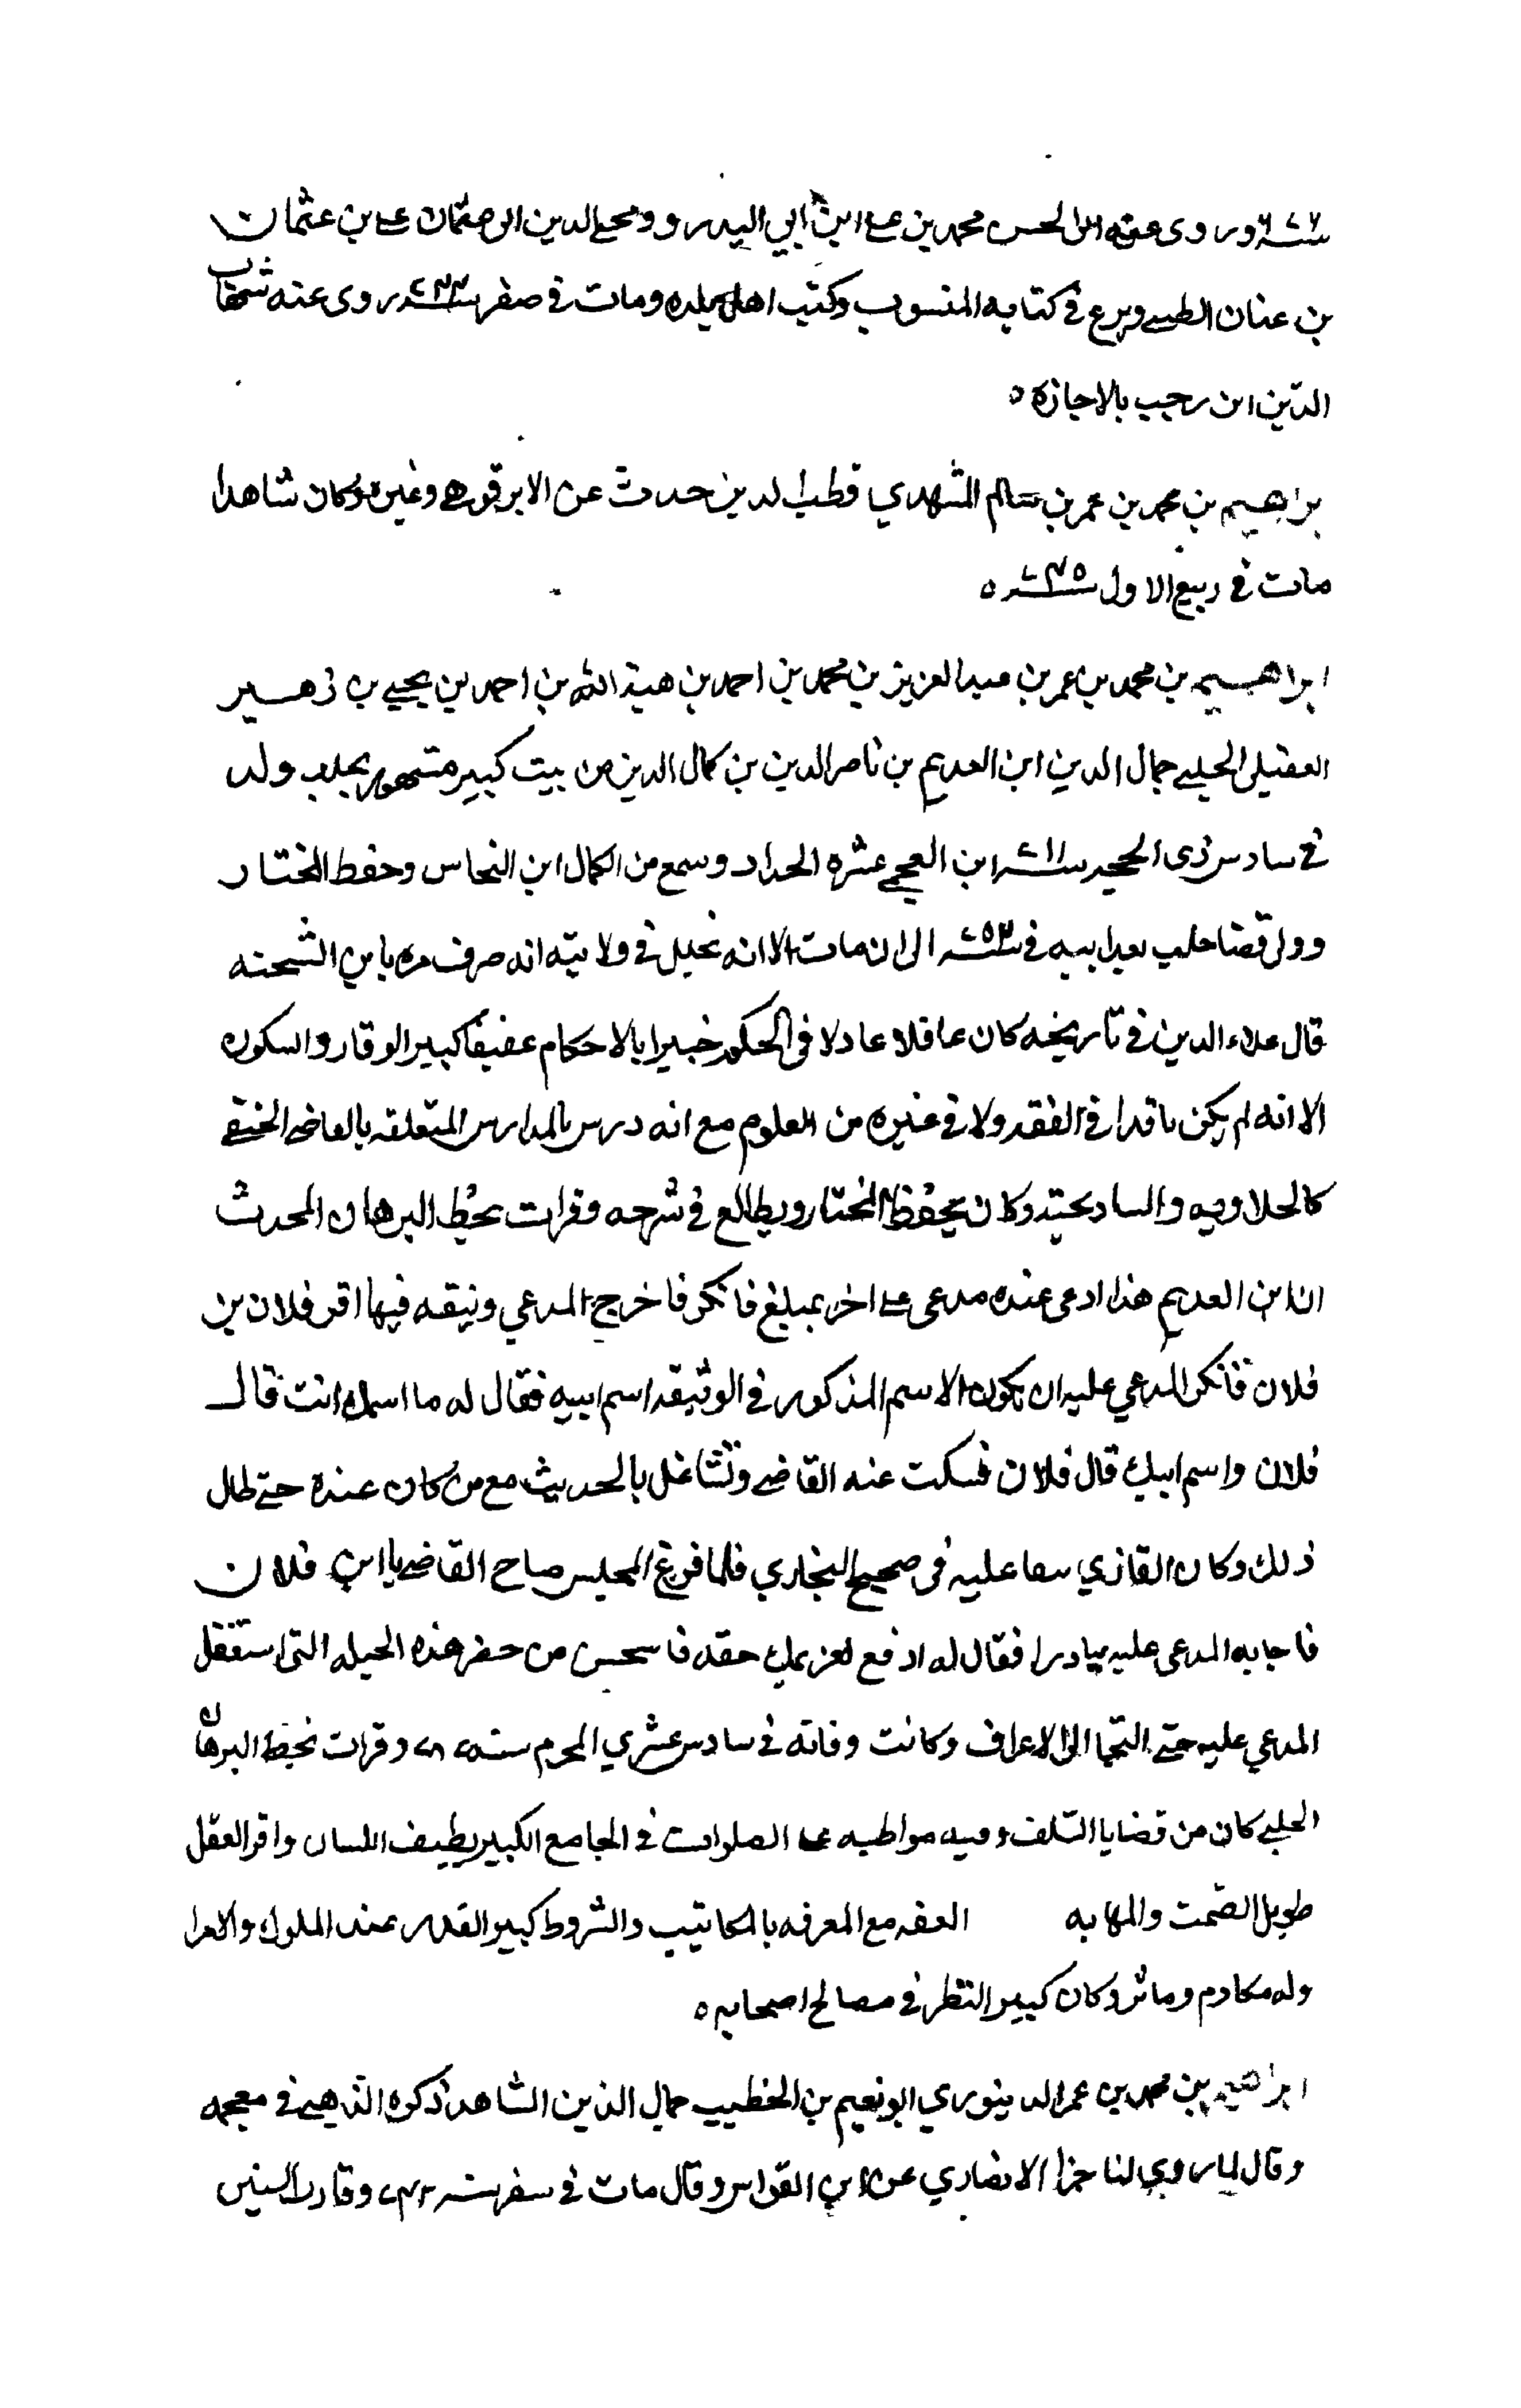 سنة ٦٧٦ وروى عنه ابن الحسن محمد بن علي ابن ابي البدر و ومحي الدين علي بن عثمان
بن عنان الطيبي وبرع في كتابه المنسوب وكتب اهل بلده ومات في صفر سنة ٧٣٣ روى عنه شهاب
الدين ابن رجب بالاجازه ه
براهيم بن محمد بن عمر بن سالم المشهدي قطب الدين حدث عن الابرقوهي وغيره وكان شاهدا
مات في ربيع الاول سنة ٧٣٥ ه
ابراهيم بن محمد بن عمر بن عبد العزيز بن محمد بن احمد بن هبة الله بن احمد بن يحيى بن زهير
العقيلي الحلبي جمال الدين ابن العديم بن ناصر الدين بن كمال الدين من بيت كبير مشهور بحلب ولد
في سادس ذى الحجه سنة ٧١١ ابن العجمي عشره الحداد وسمع من الكمال ابن النحاس وحفظ المختار
وولى قضا حلب بعد ابيه في سنة ٧٥٢ الى ان مات الا انه تخلل في ولايته انه صرف مره بابن الشحنه
قال علاء الدين في تاريخه كان عاقلا عادلا في الحكم خبيرا بالاحكام عفيفا كبير الوقار والسكون
الا انه لم يكن ناقدا في الفقه ولا في غيره من العلوم مع انه درس بالمدارس المتعلقه بالقاضي الحنفي
كالحلاويه والسادبختيه وكان يحفظ المختار ويطالع في شرحه وقرات بخط البرهان المحدث
ان ابن العديم هذا ادعى عنده مدعى على اخر بمبلغ فانكر فاخرج المدعي وثيقه فيها اقر فلان بن
فلان فانكر المدعي عليه ان يكون الاسم المذكور في الوثيقه اسم ابيه فقال له ما اسمك انت قال
فلان واسم ابيك قال فلان فسكت عنه القاضي وتشاغل بالحديث مع من كان عنده حتى طال
ذلك وكان القاري عليه في صحيح البخاري فلما فرغ المجلس صاح القاضي يا ابن فلان
فاجابه المدعى عليه مبادرا فقال له ادفع لغريمك حقه فاستحسن من حضر هذه الحيله التى استغفل
المدعي عليه حتى التجا الى الاعتراف وكانت وفاته في سادس عشري المحرم سنه وقرات بخط البرهان
الحلبي كان من قضايا السلف وفيه مواظبه على الصلوات في الجامع الكبير نظيف اللسان وافر العقل
طويل الصمت والمهابه العفه مع المعرفه بالمكاتيب والشروط كبير القدر عند الملوك والامرا
وله مكارم وماثر وكان كبير النظر في مصالح اصحابه ه
ابراهيم بن محمد بن عمر الدينوري ابو نعيم بن الخطيب جمال الدين الشاهد ذكره الذهبي في معجمه
وقال روى لنا جزا الانصاري عن ابن القواس وقال مات في سفر سنه ٧٣٢ وقارب السنين